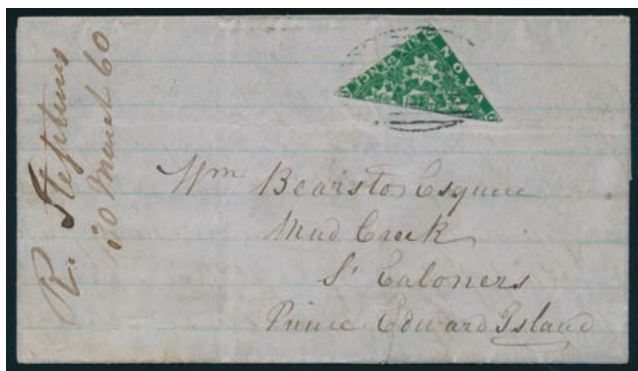 R. Stephens
30 March 60
SIX PENCE
NOVA
Wm Bearsto Esquire
Mud Creek
St Ealoners
Prince Edward Island